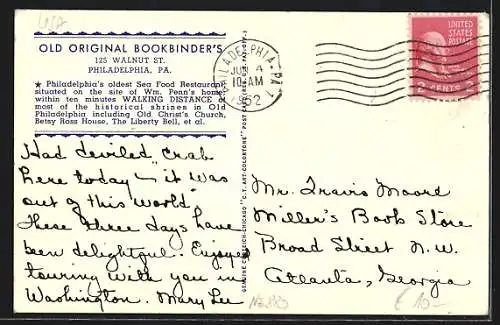 USA
OLD ORIGINAL BOOKBINDER'S
125 WALNUT ST.
PHILADELPHIA, PA.
★ Philadelphia's oldest Sea Food Restaurant
situated on the site of Wm. Penn's home
within ten minutes WALKING DISTANCE of
most of the historical shrines in Old
Philadelphia including Old Christ's Church,
Betsy Ross House, The Liberty Bell, et al.
Had deviled crab
here today — it was
out of this world.
These three days have
been delightful. Enjoyed
touring with you in
Washington. Mary Lee
GENUINE CURTEICH-CHICAGO "C.T. ART-COLORTONE" POST CARD
PHILADELPHIA, PA.
4
10 AM
1952
UNITED
STATES
POSTAGE
2 CENTS 2
Mr. Travis Moore
Miller's Book Store
Broad Street N.W.
Atlanta, Georgia
€ 10-